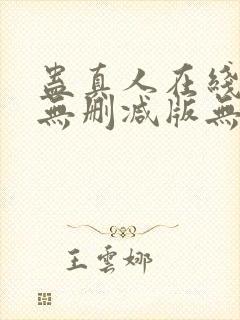 蠱真人在綫
無删减版無
王雲娜